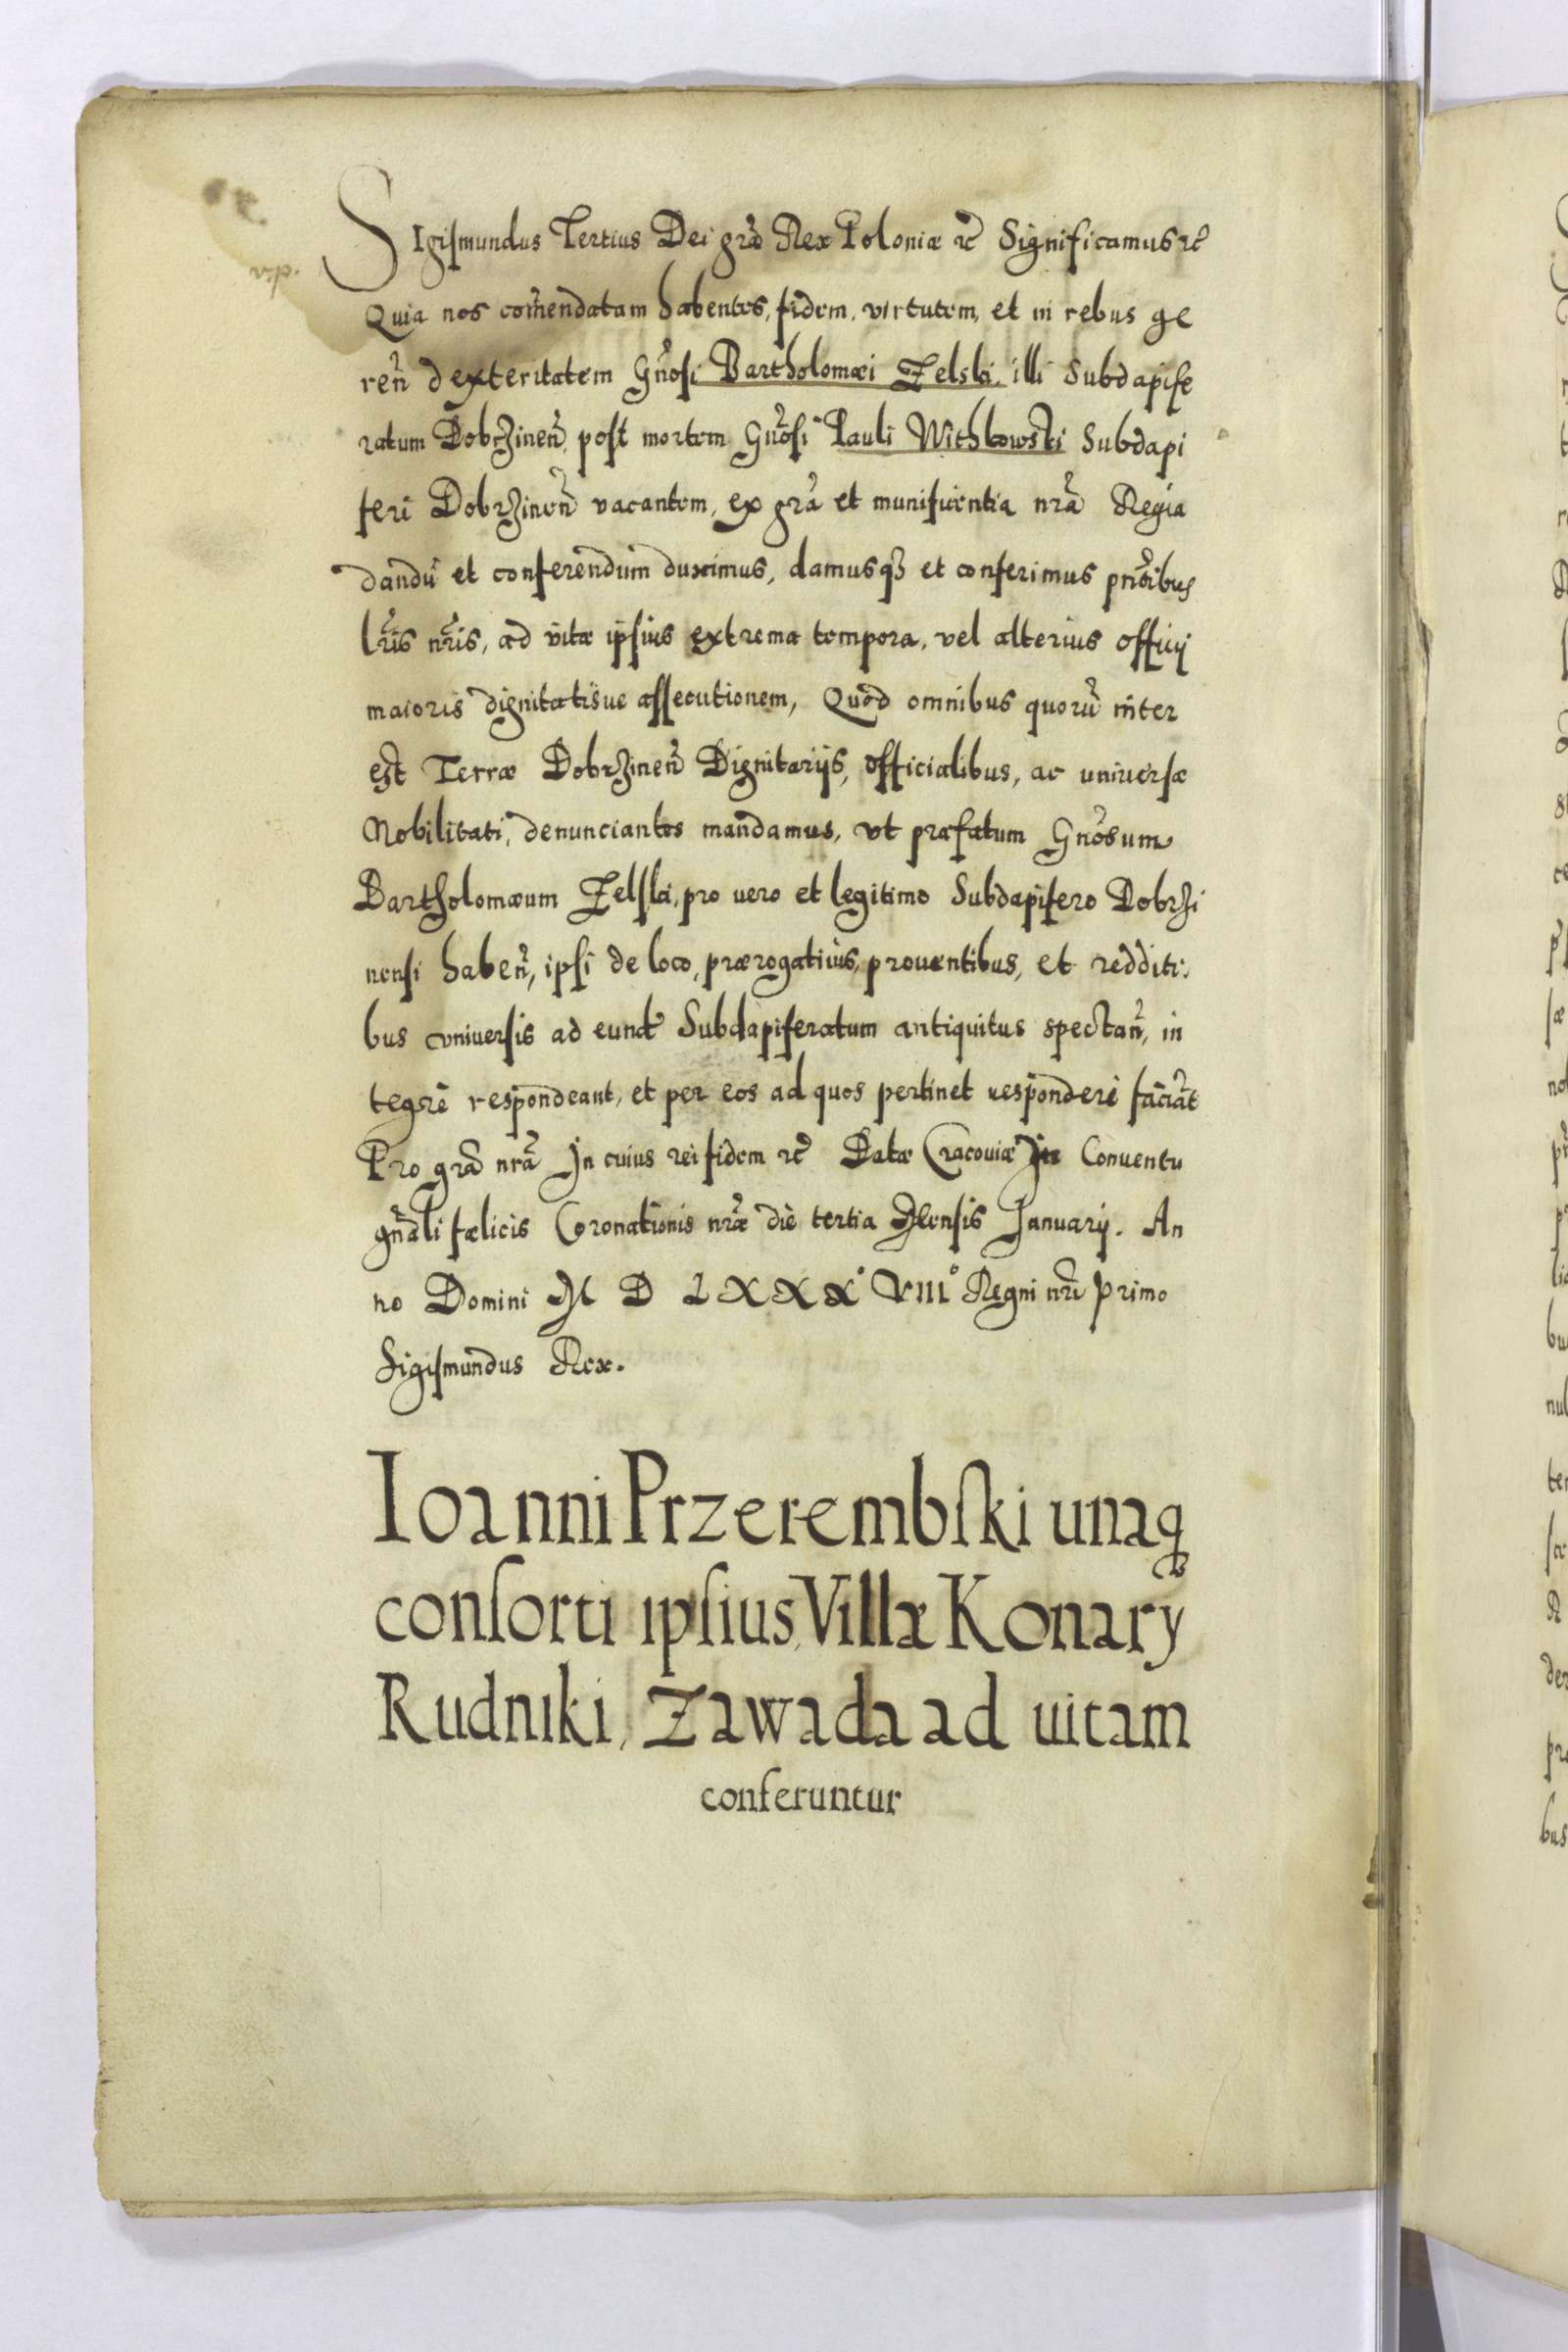 Sigismundus Tertius Dei grã Rex Poloniæ etc̃ Significamus etc̃
Quia nos com̃endatam habentes, fidem, virtutem, et in rebus ge
reñ dexteritatem Gñosi Bartholomæi Zelski illi Subdapife
ratum Dobrzineñ, post mortem Gñosi Pauli Withkowski Subdapi
feri Dobrzineñ vacantem, ex grã et munificentia nrã Regia
dandũ et conferendum duximus, damusq3 et conferimus pñtibus
lr̃is nr̃is, ad vitæ ipsius extrema tempora, vel alterius officij
maioris dignitatisue assecutionem, Quod omnibus quorũ inter
est Terræ Dobrzineñ Dignitarijs, officialibus, ac universæ
Nobilitati, denunciantes mandamus, vt præfatum Gñosum
Bartholomæum Zelski, pro uero et legitimo Subdapifero Dobrzi
nensi habeñ, ipsi de loco, prærogatiuis, prouentibus, et redditi:
bus vniuersis ad eund̃ Subdapiferatum antiquitus spectañ, in
tegrè respondeant, et per eos ad quos pertinet responderi faciãt
Pro grã nrã In cuius rei fidem etc̃ Datæ Cracouiæ In Conuentu
gñali fælicis Coronationis nr̃æ die tertia Mensis Januarij. An
no Domini M D LXXXº VIIIº Regni nr̃i primo
Sigismundus Rex.
Ioanni Przerembski unaq3
consorti ipsius, Villæ Konary
Rudniki, Zawada ad uitam
conferuntur